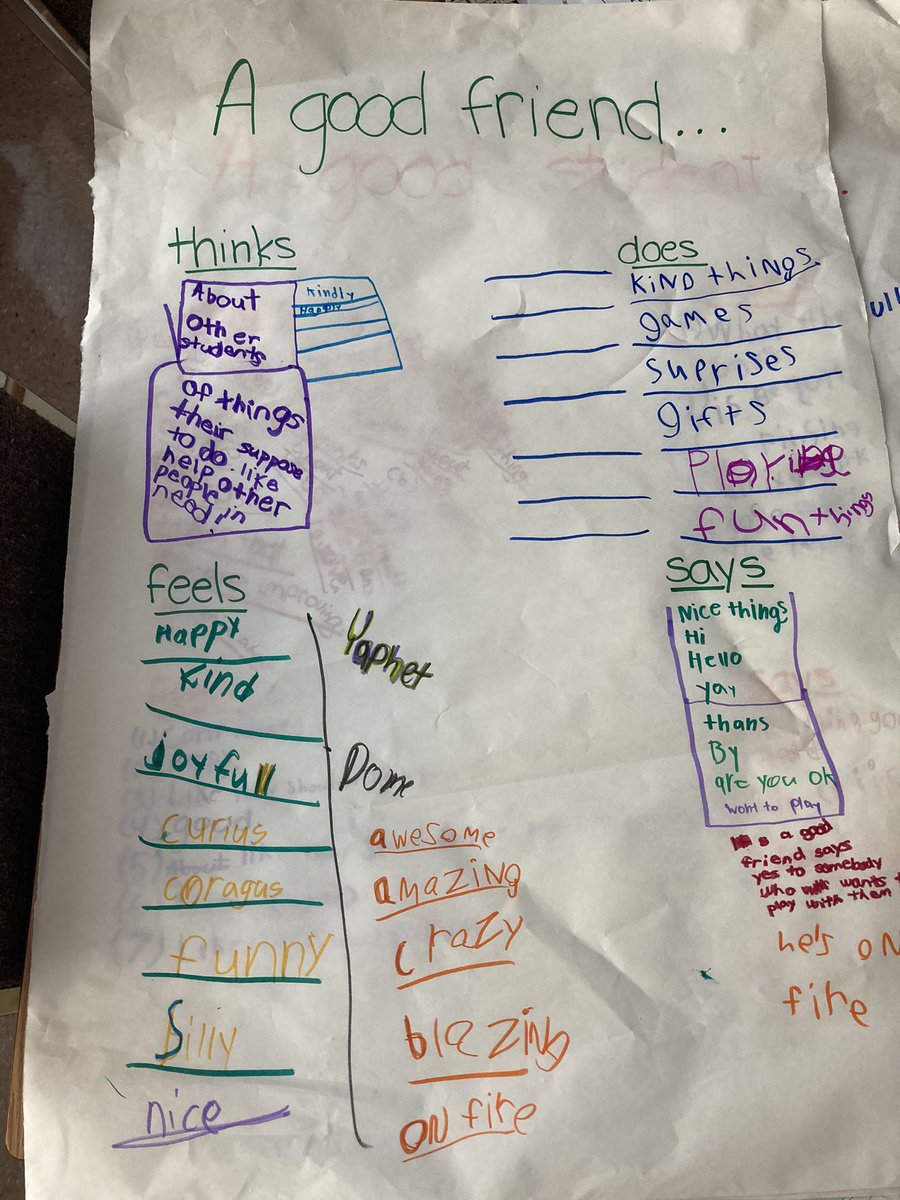 A good friend...
thinks
About
other
students
Kindly
Happly
of things
their suppose
to do. like
help other
people in
need.
does
KIND things
games
suprises
gifts
fun things
feels
Happy
Kind
joyfull
curius
coragus
funny
Silly
nice
Yaphet
Dome
awesome
amazing
crazy
blazing
ON fire
says
Nice things
Hi
Hello
yay
thans
By
are you ok
wont to play
a good
friend says
yes to somebody
who wants
play with them
he's ON
fire
A good student